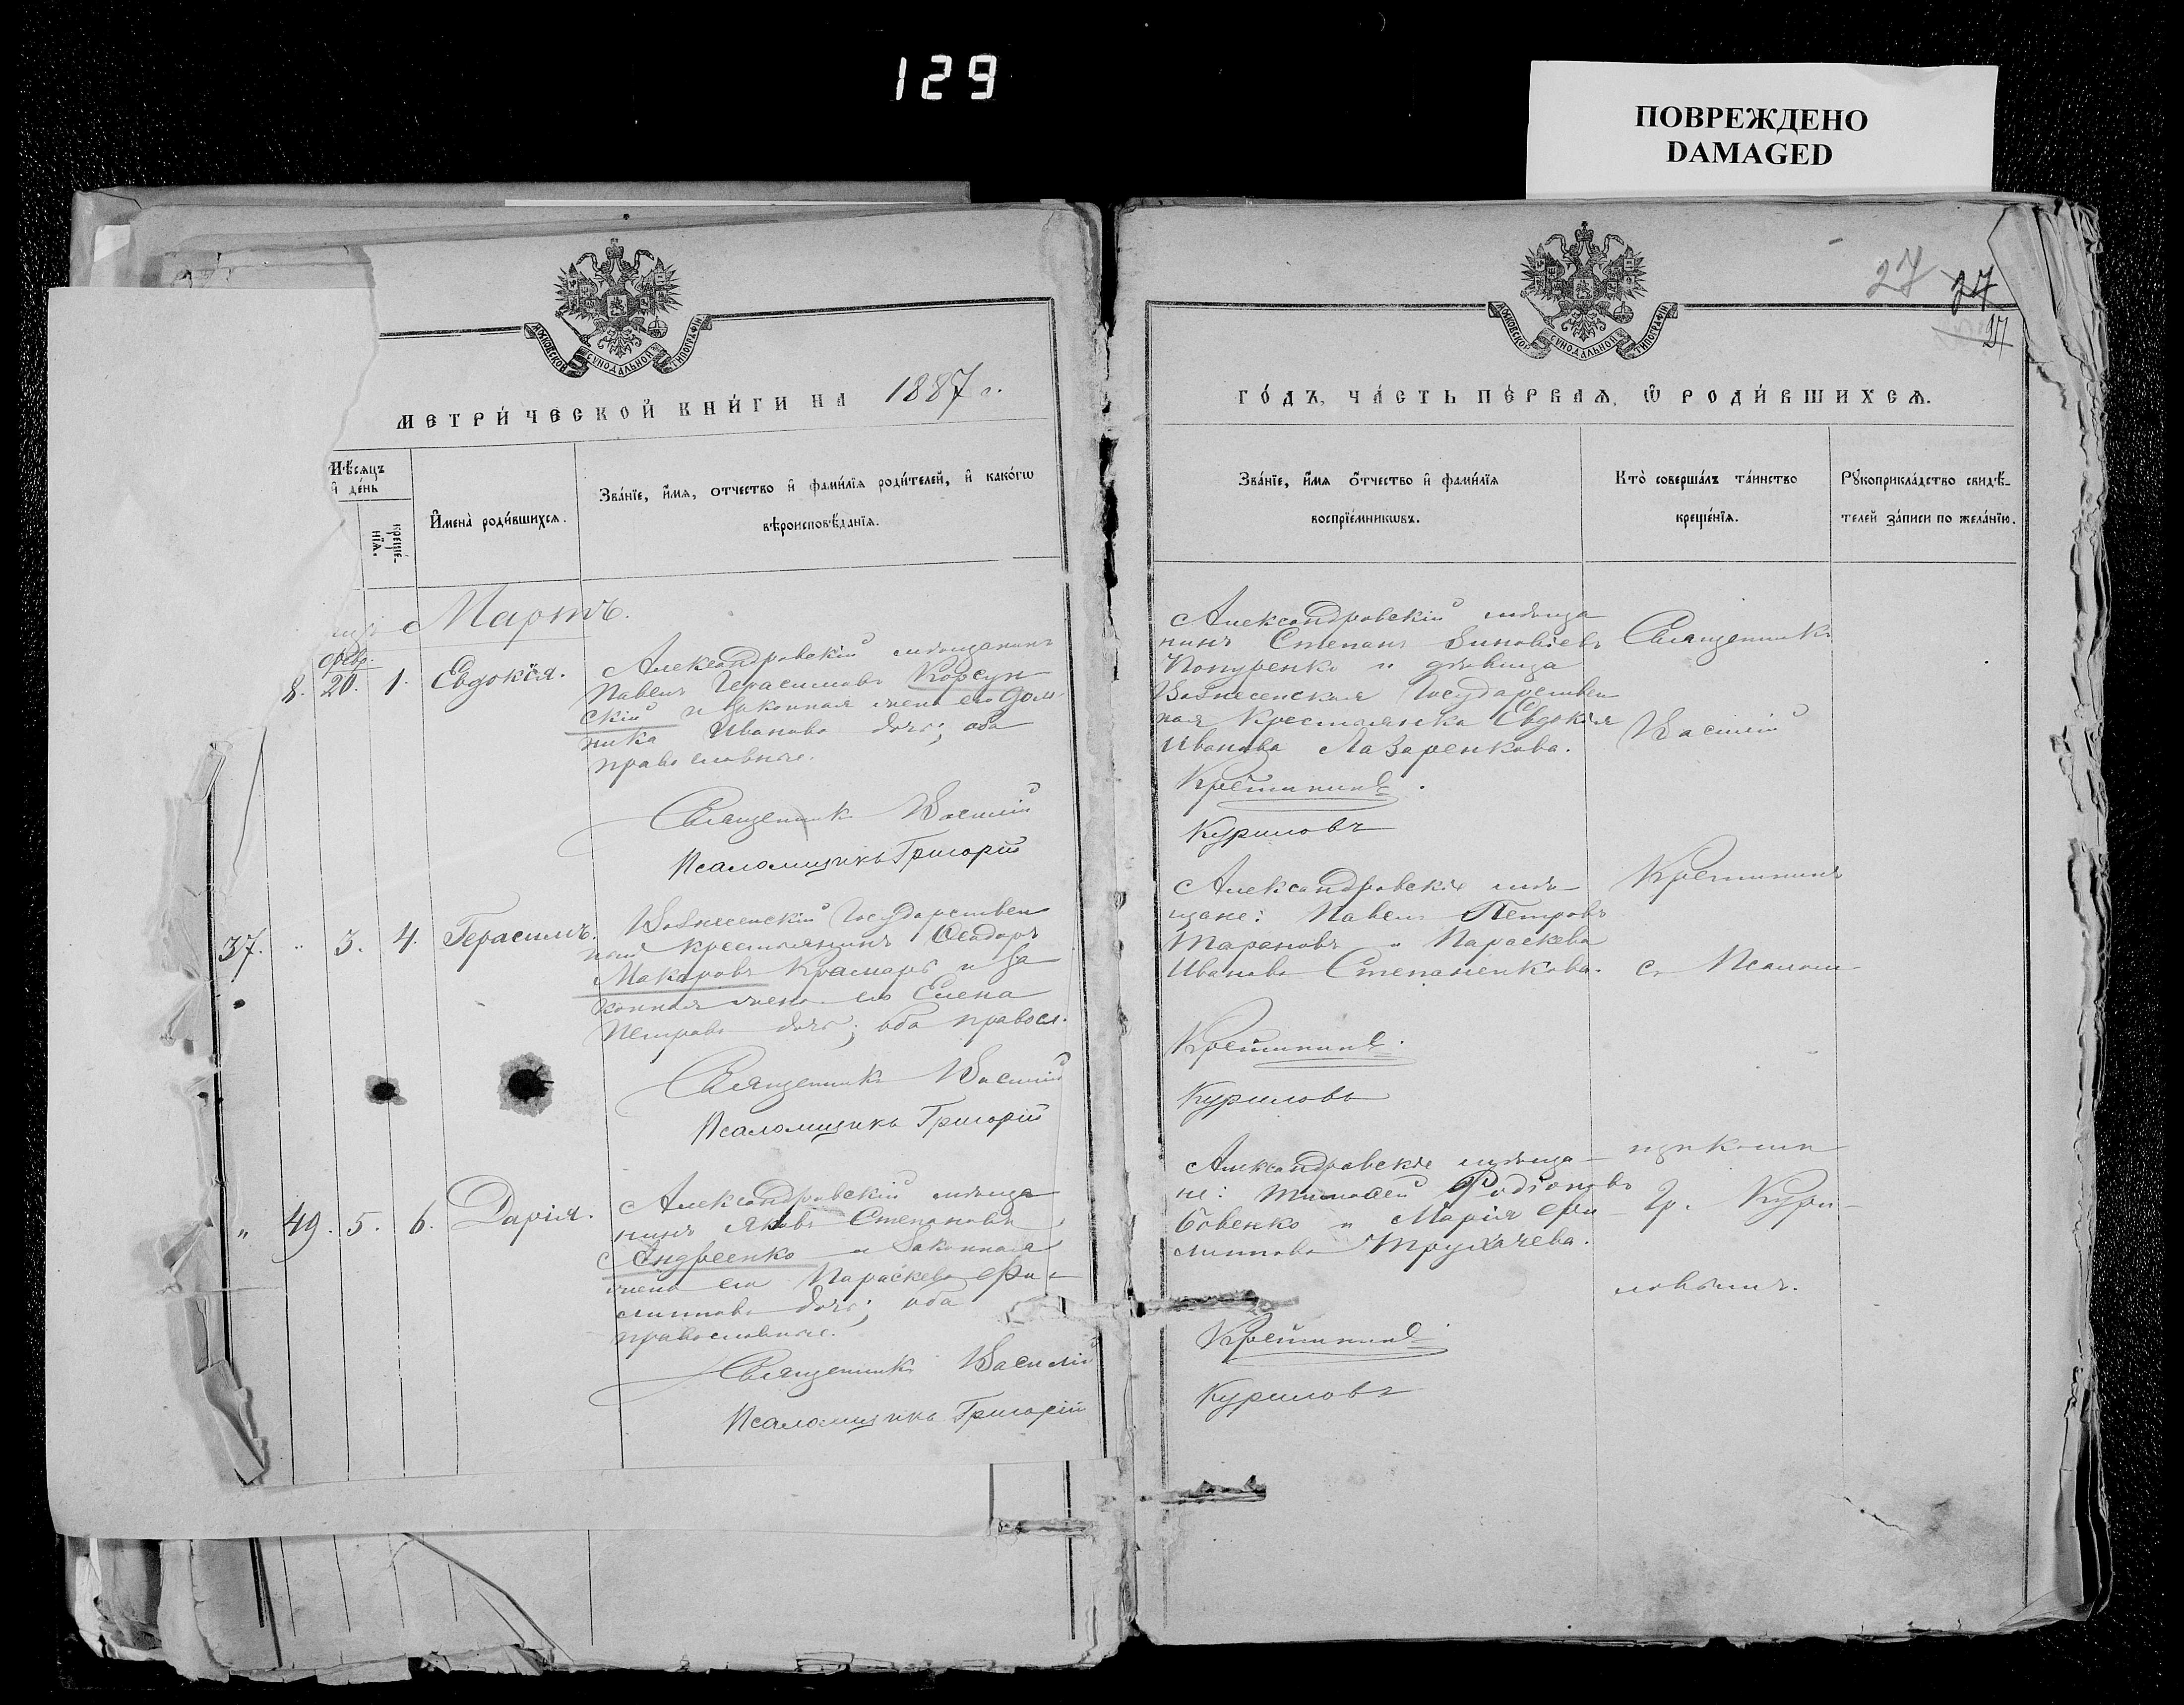 129
ПОВРЕЖДЕНО
DAMAGED
27 27
27
МОСКОВСКОЙ СѴНОДАЛЬНОЙ ТИПОГРАФІИ
МЕТРИ́ЧЕСКОЙ КНИ́ГИ НА 1887 г.
Мѣ́сяцъ
и҆ де́нь
креще́-
нїѧ.
И҆мена̀ роди́вшихсѧ.
Зва́нїе, и҆́мѧ, ѻ҆́тчество и҆ фами́лїѧ роди́телей, и҆ како́гѡ
вѣроисповѣ́данїѧ.
Мартъ.
8. Февр. 20. 1. Евдокія.
Александровскій мѣщанинъ
Павелъ Герасимовъ Корсун
скій и законная жена его Дом
ника Иванова дочь; оба
православные.
Священникъ Василій
Псаломщикъ Григорій
37. " 3. 4. Герасимъ.
Вознесенскій Государствен
ный крестьянинъ Ѳеодоръ
Макаровъ Крамаръ и за
конная жена его Елена
Петрова дочь; оба правосл.
Священникъ Василій
Псаломщикъ Григорій
" 49. 5. 6. Дарія.
Александровскій мѣща
нинъ Яковъ Степановъ
Андреенко и законная
жена его Параскева Фи-
липпова дочь; оба
православные.
Священникъ Василій
Псаломщикъ Григорій
МОСКОВСКОЙ СѴНОДАЛЬНОЙ ТИПОГРАФІИ
ГО́ДЪ, ЧА́СТЬ ПЕ́РВАѦ, Ѿ РОДИ́ВШИХСѦ.
Зва́нїе, и҆́мѧ ѻ҆́тчество и҆ фами́лїѧ
воспрїе́мникѡвъ.
Кто̀ соверша́лъ та́инство
креще́нїѧ.
Рꙋкоприкла́дство свидѣ́-
телей за́писи по жела́нїю.
Александровскій мѣща
нинъ Степанъ Зиновіевъ
и дѣвица
Вознесенская Государствен
ная крестьянка Евдокія
Иванова Лазаренкова.
Крестининъ.
Куриловъ
Александровскіе мѣ-
щане: Павелъ Петровъ
Тарановъ и Параскева
Иванова Степаненкова.
Крестининъ.
Куриловъ
Александровскіе мѣща-
не: Тимоѳей Родіоновъ
Бовенко и Марія Фи-
липпова Трухачева.
Крестининъ
Куриловъ
Священникъ
Василій
Крестининъ
съ Псалом-
щикомъ
Гр. Кури-
ловымъ.